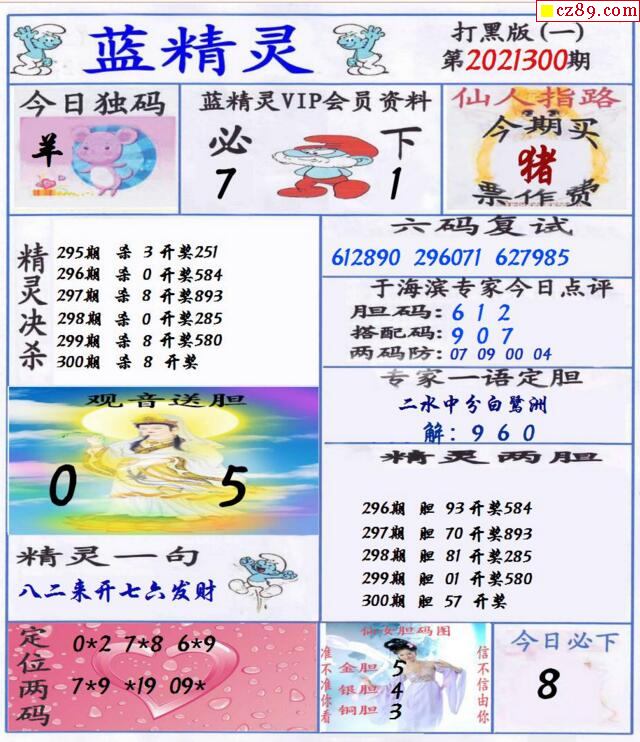 cz89.com
蓝精灵
打黑版(一)
第2021300期
今日独码
羊
蓝精灵VIP会员资料
必 下
7 1
仙人指路
今期买
猪
票作费
精灵决杀
295期 杀 3 开奖251
296期 杀 0 开奖584
297期 杀 8 开奖893
298期 杀 0 开奖285
299期 杀 8 开奖580
300期 杀 8 开奖
六码复试
612890 296071 627985
于海滨专家今日点评
胆码: 6 1 2
搭配码: 9 0 7
两码防: 07 09 00 04
专家一语定胆
二水中分白鹭洲
解: 9 6 0
观音送胆
0 5
精灵两胆
296期 胆 93 开奖584
297期 胆 70 开奖893
298期 胆 81 开奖285
299期 胆 01 开奖580
300期 胆 57 开奖
精灵一句
八二来开七六发财
定位两码
0*2 7*8 6*9
7*9 *19 09*
仙女胆码图
准不准你看
金胆 5
银胆 4
铜胆 3
信不信由你
今日必下
8